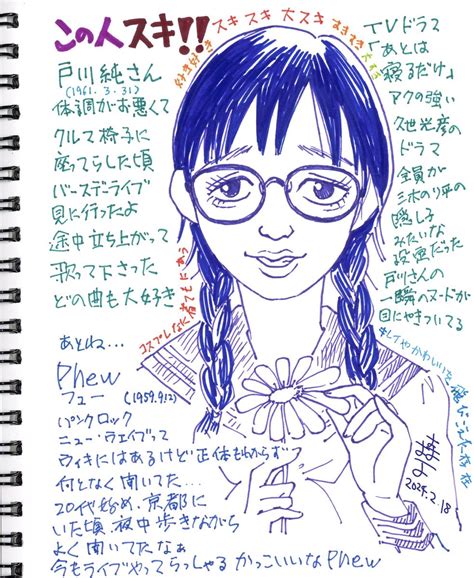 この人スキ!!
好き好き スキスキ 大スキ
すきすき大すき
戸川純さん
(1961.3.31)
体調がお悪くて
クルマ椅子に
座ってらした頃
バースデーライブ
見に行ったよ
途中立ち上がって
歌って下さった
どの曲も大好き
TVドラマ
「あとは
寝るだけ」
アクの強い
久世光彦の
ドラマ
全員が
三木のり平の
隠し子
みたいな
役画だった
戸川さんの
一瞬のヌードが
目にやきついてる
コスプレなに着てもにあう
そしてやかわいいを飛びこえた存在
あとね…
Phew
フュー (1959.9.12)
パンクロック
ニュー・ウェイブって
ウィキにはあるけど正体もわからず
付となく聞いてた…
20代始め、京都に
いた頃、夜中歩きながら
よく聞いてたなぁ
今もライブやってらっしゃる かっこいいなPhew
2025.2.18